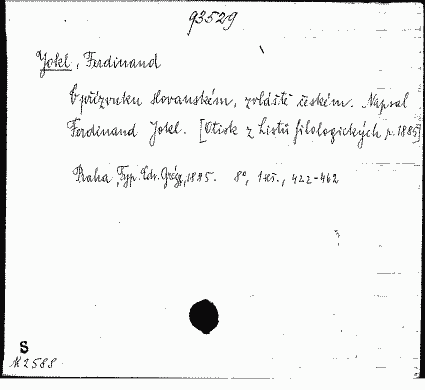 93529
Jokl, Ferdinand
O přízvuku slovanském, zvláště českém. Napsal
Ferdinand Jokl. [Otisk z Listů filologických r. 1885]
Praha, Typ. Edv. Grég, 1885. 8°, 1 seš., 422-462
S
N 2588